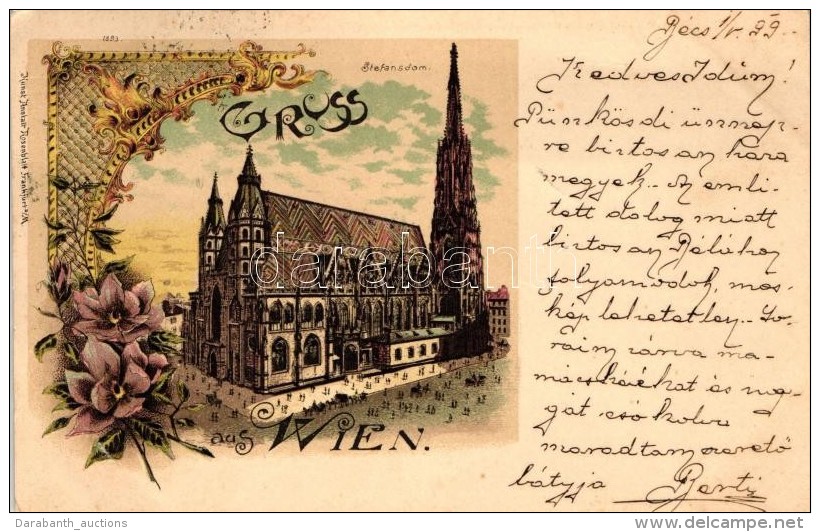 1893
Kunst Anstalt Rosenblatt Frankfurt a/M.
Stefansdom.
GRUSS
aus WIEN.
Bécs 1/V. 99.
Kedves Idum!
Pünkösdi ünnep-
re biztosan haza
megyek. Az emlí-
tett dolog miatt
biztosan Bélához
folyamodok, más-
kép lehetetlen. So-
raim zárva ma-
mácskáékat és ma-
gát csókolva
maradtam szerető
bátyja Berti
darabanth
Darabanth_auctions
©delcampe.net